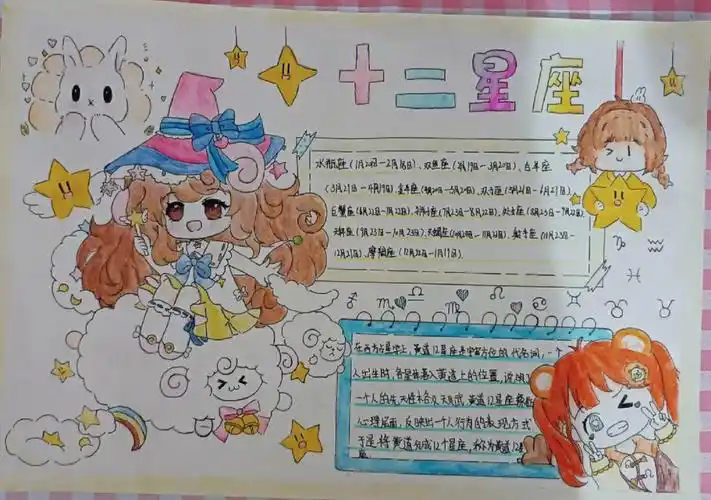 十二星座
水瓶座(1月20日-2月18日)、双鱼座(2月19日-3月20日)、白羊座
(3月21日-4月19日)、金牛座(4月20日-5月20日)、双子座(5月21日-6月21日)
巨蟹座(6月22日-7月22日)、狮子座(7月23日-8月22日)、处女座(8月23日-9月22日)
天秤座(9月23日-10月23日)、天蝎座(10月24日-11月22日)、射手座(11月23日-
12月21日)、摩羯座(12月22日-1月19日).
在西方占星学上,黄道12星座是宇宙方位的代名词,一个
人出生时,各星体落入黄道上的位置,说明
一个人的先天性格及天赋,黄道12星座象
心理层面,反映出一个人行为的表现方式
于是将黄道分成12个星座,称为黄道12星
座